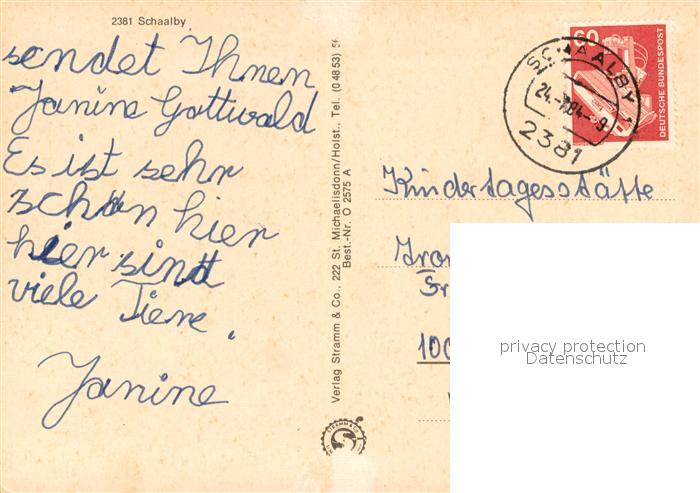 2381 Schaalby
sendet Ihnen
Janine Gottwald
Es ist sehr
schön hier
hier sind
viele Tiere.
Janine
Verlag Stramm & Co., 222 St. Michaelisdonn/Holst., Tel. (0 48 53) 5
Best.-Nr. O 2575 A
60
DEUTSCHE BUNDESPOST
SCHAALBY 1
24.-7.84.-9
2381
Kindertagesstätte
100
privacy protection
Datenschutz